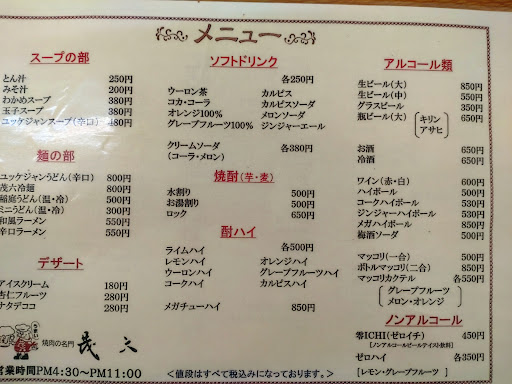 メニュー
スープの部
とん汁 250円
みそ汁 200円
わかめスープ 380円
玉子スープ 380円
ユッケジャンスープ(辛口) 480円
麺の部
ユッケジャンうどん(辛口) 800円
茂六冷麺 800円
稲庭うどん(温・冷) 500円
ミニうどん(温・冷) 300円
和風ラーメン 550円
辛口ラーメン 550円
デザート
アイスクリーム 180円
杏仁フルーツ 280円
ナタデココ 280円
焼肉の名門 茂六
営業時間PM4:30〜PM11:00
ソフトドリンク
各250円
ウーロン茶 カルピス
コカ・コーラ カルピスソーダ
オレンジ100% メロンソーダ
グレープフルーツ100% ジンジャーエール
クリームソーダ 各380円
(コーラ・メロン)
焼酎(芋・麦)
水割り 500円
お湯割り 500円
ロック 650円
酎ハイ
各500円
ライムハイ
レモンハイ オレンジハイ
ウーロンハイ グレープフルーツハイ
コークハイ カルピスハイ
メガチューハイ 850円
<値段はすべて税込みになっております。>
アルコール類
生ビール(大) 850円
生ビール(中) 550円
グラスビール 350円
瓶ビール(大) 650円
キリン
アサヒ
お酒 650円
冷酒 650円
ワイン(赤・白) 600円
ハイボール 500円
コークハイボール 530円
ジンジャーハイボール 530円
メガハイボール 850円
梅酒ソーダ 500円
マッコリ(一合) 500円
ボトルマッコリ(二合) 850円
マッコリカクテル 各550円
グレープフルーツ
メロン・オレンジ
ノンアルコール
零ICHI(ゼロイチ) 450円
[ノンアルコールビールテイスト飲料]
ゼロハイ 各350円
[レモン・グレープフルーツ]